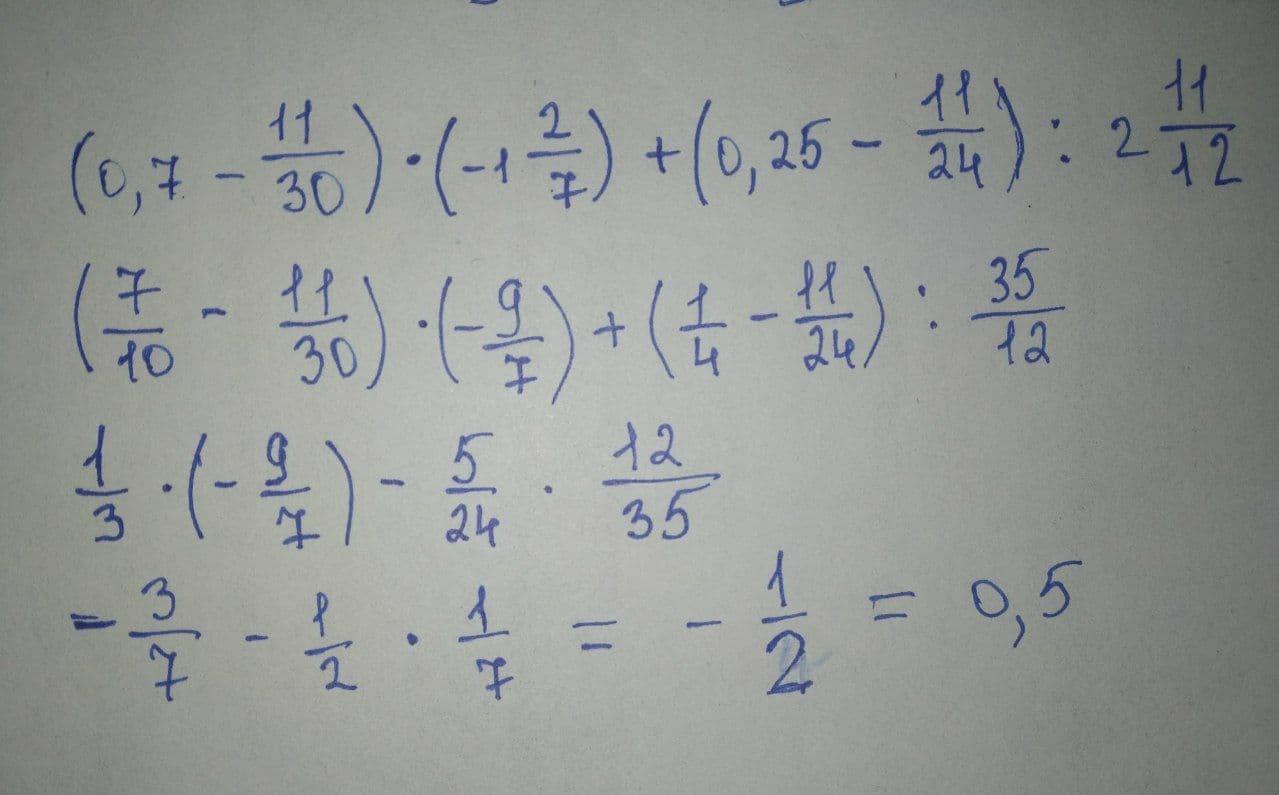 (0,7 - 11/30) · (-1 2/7) + (0,25 - 11/24) : 2 11/12
(7/10 - 11/30) · (-9/7) + (1/4 - 11/24) : 35/12
1/3 · (-9/7) - 5/24 · 12/35
-3/7 - 1/2 · 1/7 = -1/2 = 0,5